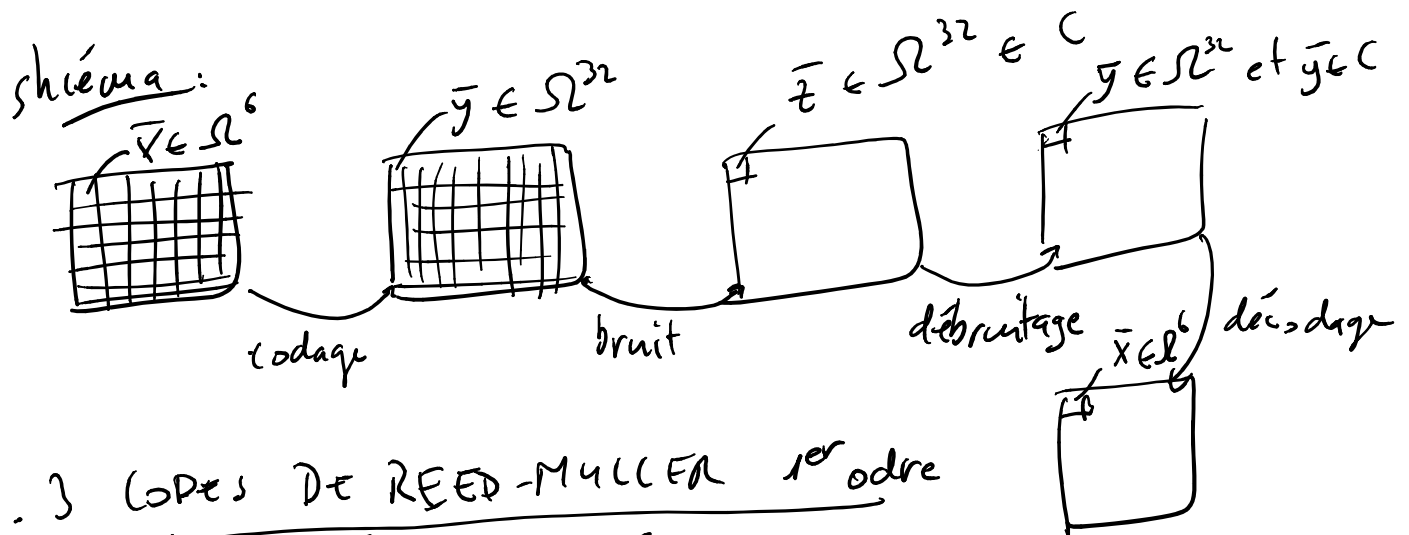 shiéma:
x̄ ∈ Ω⁶
ȳ ∈ Ω³²
z̄ ∈ Ω³² ∈ C
ȳ ∈ Ω³² et ȳ ∈ C
codage
bruit
débruitage
décodage
x̄ ∈ Ω⁶
.3 CODES DE REED-MULLER 1er odre